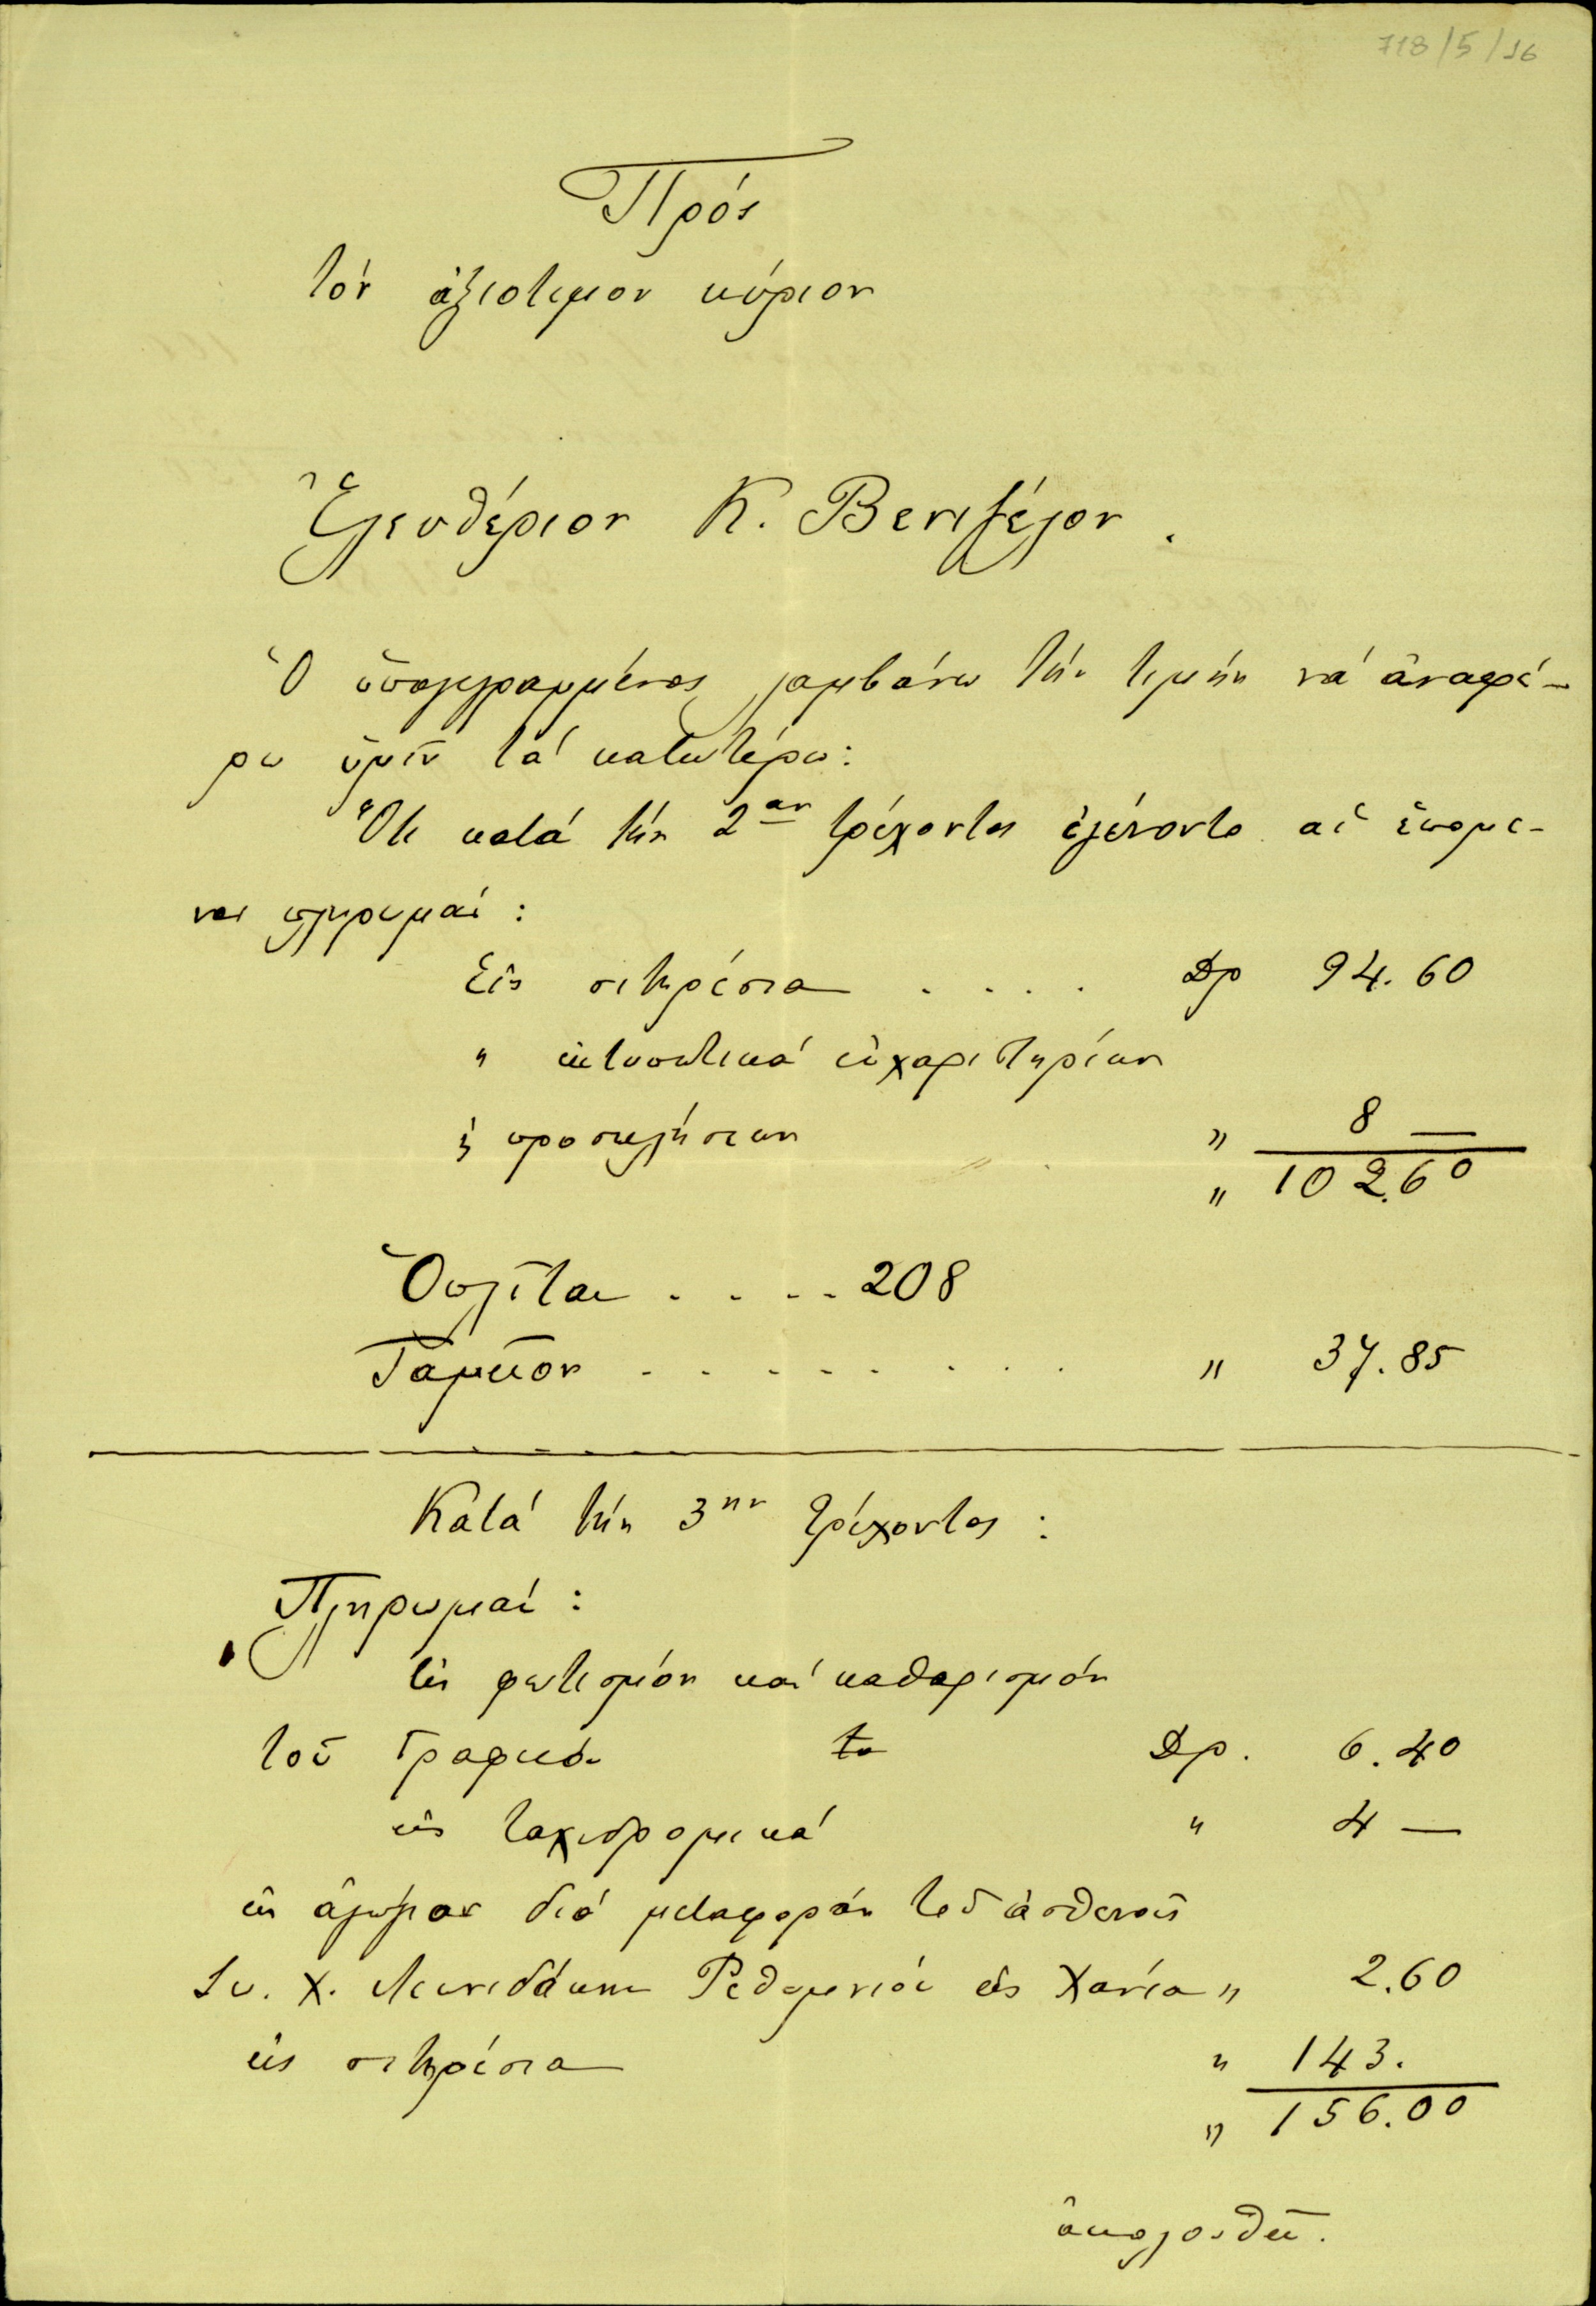 718/5/16
Πρός
τόν ἀξιότιμον κύριον
Ἐλευθέριον Κ. Βενιζέλον.
Ὁ ὑπογεγραμμένος λαμβάνω τήν τιμήν νά ἀναφέ-
ρω ὑμῖν τά κατωτέρω:
Ὅτι κατά τήν 2αν τρέχοντος ἐγένοντο αἱ ἑπόμε-
ναι πληρωμαί:
Εἰς σιτηρέσια .... Δρ 94.60
" ἐκτυπωτικά εὐχαριστηρίων
ἤ προσκλήσεων " 8 —
" 102.60
Ὁπλῖται .... 208
Ταμεῖον ........ " 37.85
Κατά τήν 3ην τρέχοντος:
Πληρωμαί:
εἰς φωτισμόν καί καθαρισμόν
τοῦ Γραφείου Δρ. 6.40
εἰς ταχυδρομικά " 4 —
εἰς ἀγώγιον διά μεταφοράν τοῦ ἀσθενοῦς
Χ. Ρεθύμνιοι εἰς Χανία " 2.60
εἰς σιτηρέσια " 143.
" 156.00
ἀκολουθεῖ.